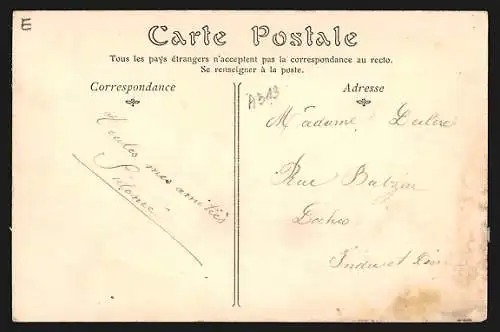 E
Carte Postale
Tous les pays étrangers n'acceptent pas la correspondance au recto.
Se renseigner à la poste.
Correspondance
Toutes mes amitiés
Adresse
A313
Madame
Rue Balzac
Loches
Indre et Loire